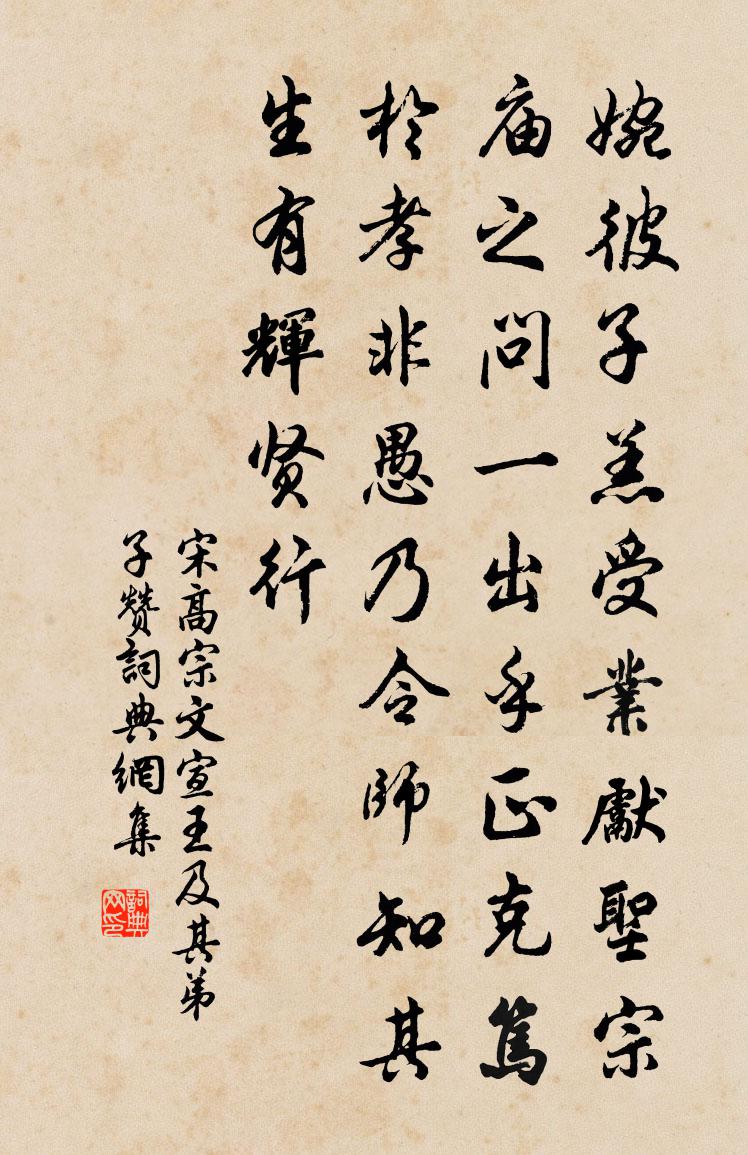 婉彼子羔受業獻聖宗
庙之問一出乎正克篤
於孝非愚乃令師知其
生有輝贤行
宋高宗文宣王及其弟
子赞詞典網集
詞典网印